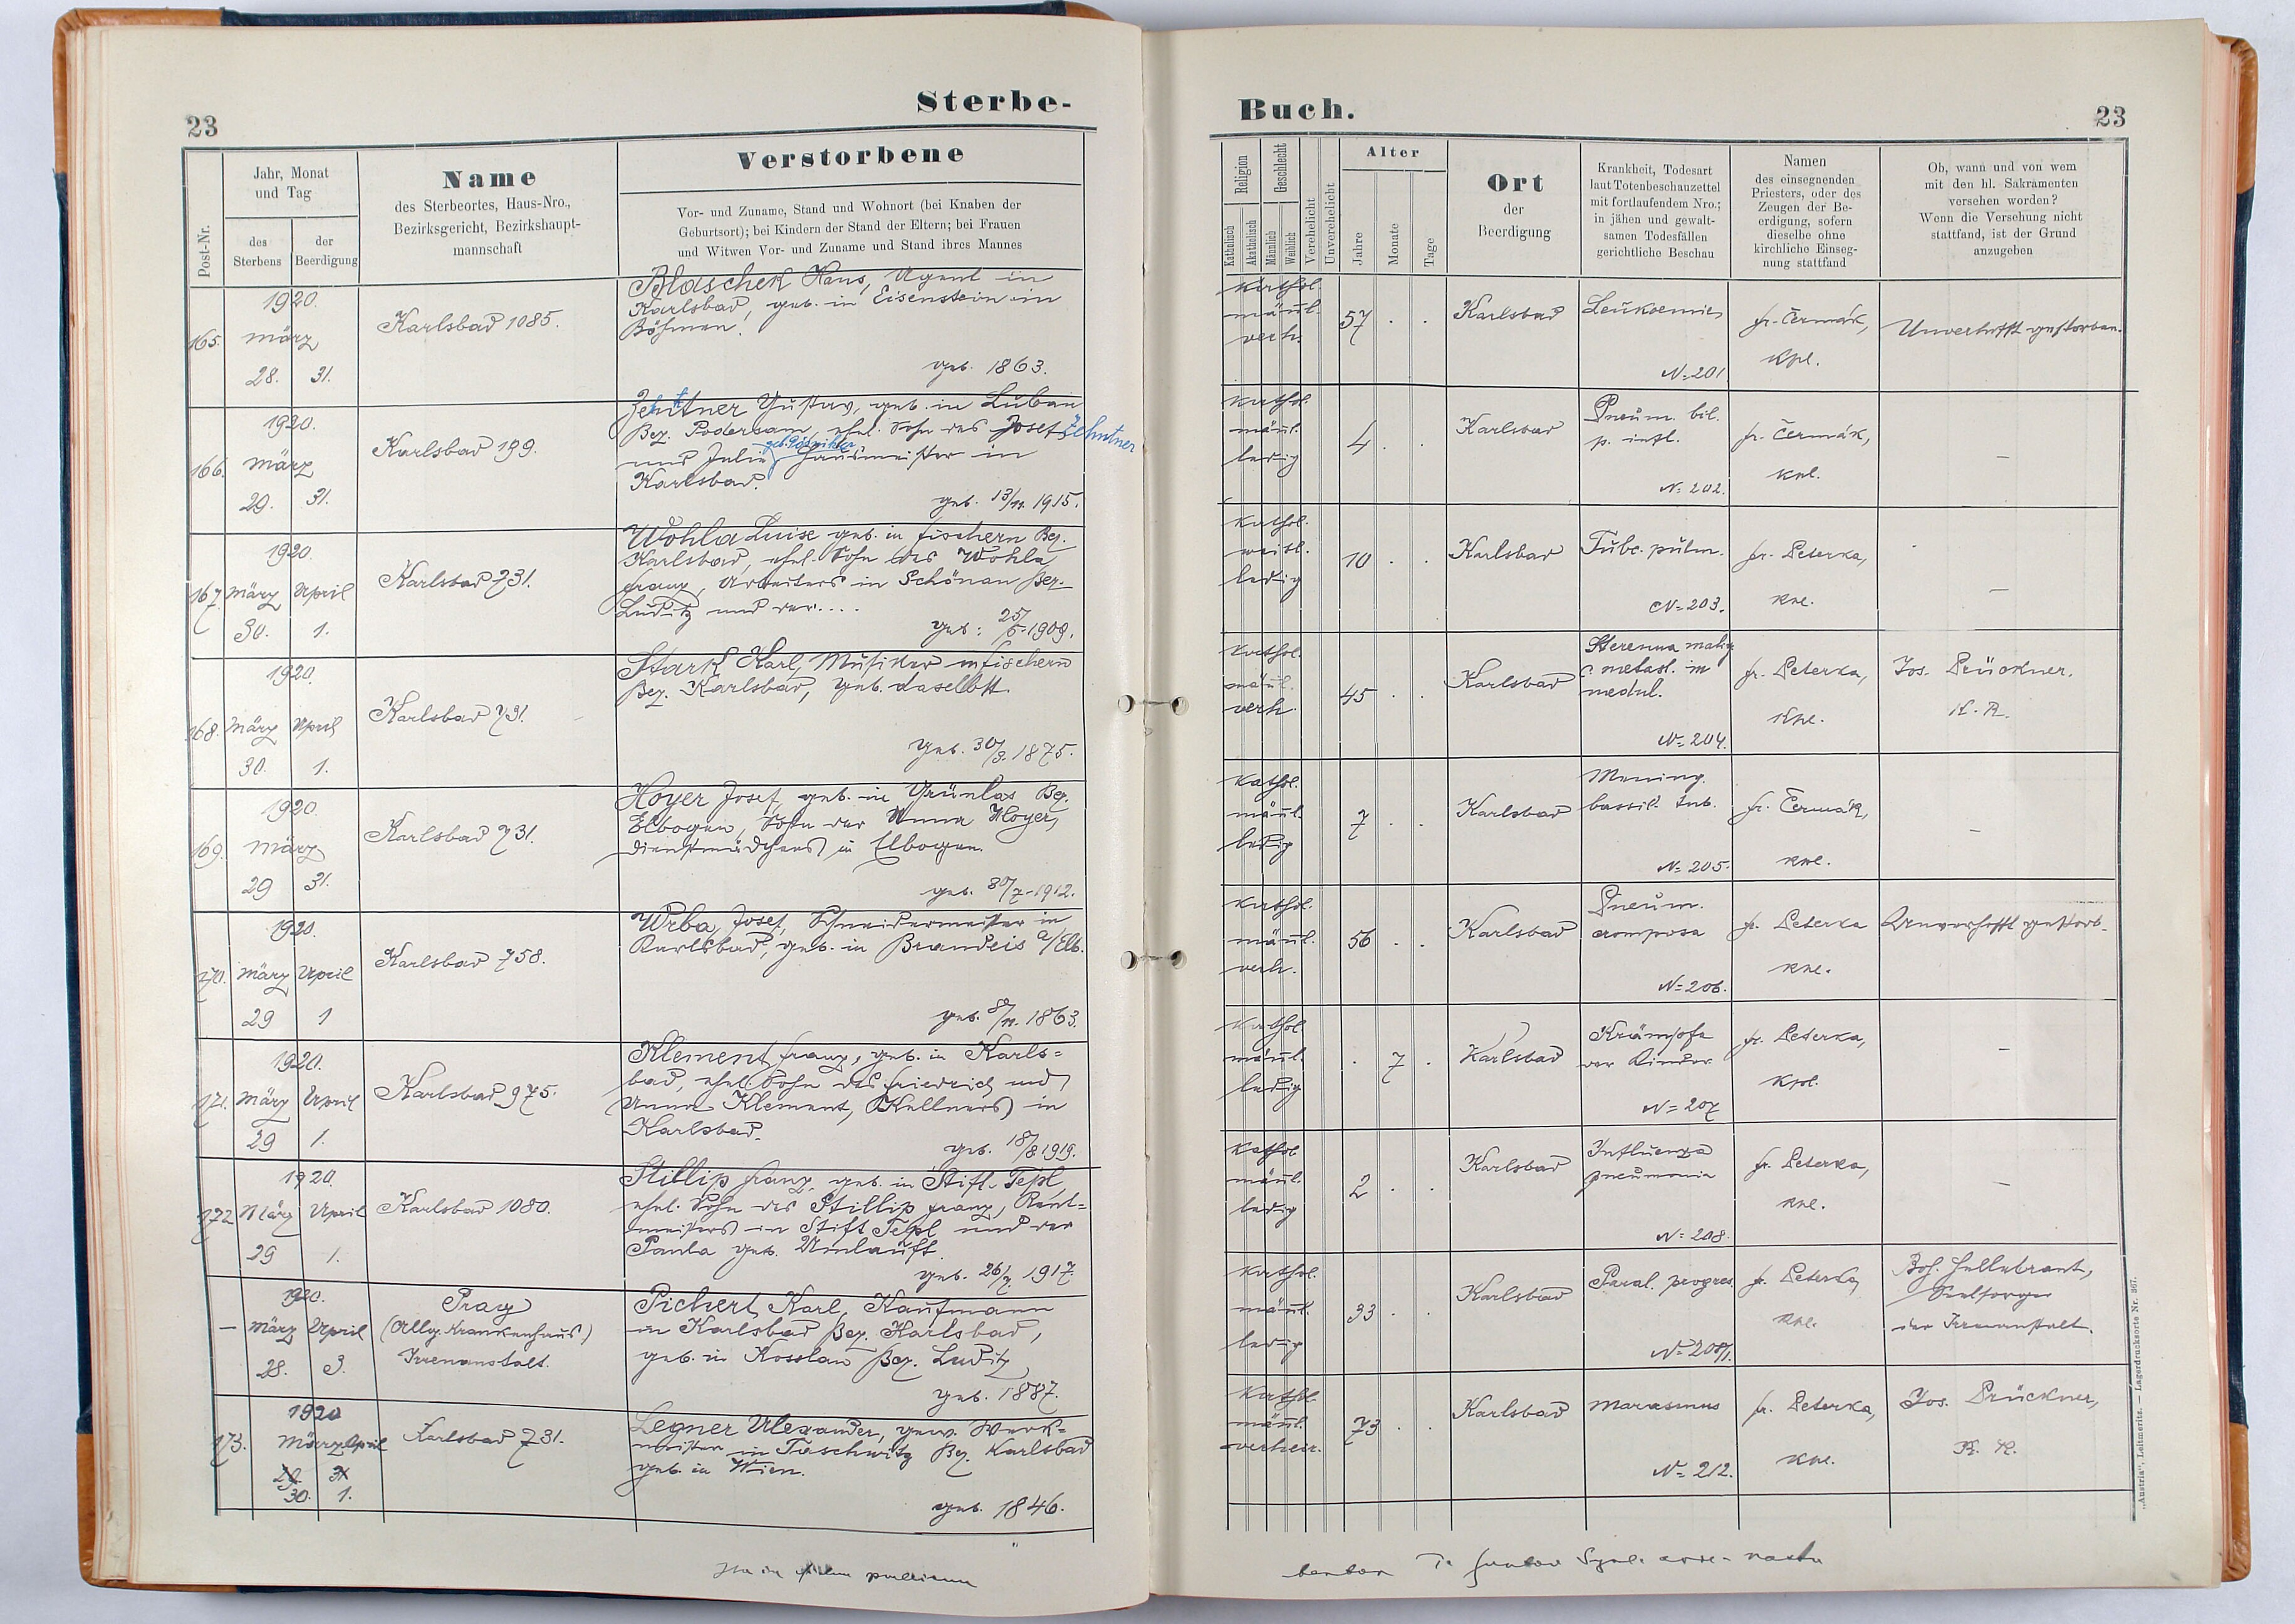 Sterbe-
23
Post-Nr.
Jahr, Monat
und Tag
des
Sterbens
der
Beerdigung
Name
des Sterbeortes, Haus-Nro.,
Bezirksgericht, Bezirkshaupt-
mannschaft
Verstorbene
Vor- und Zuname, Stand und Wohnort (bei Knaben der
Geburtsort); bei Kindern der Stand der Eltern; bei Frauen
und Witwen Vor- und Zuname und Stand ihres Mannes
165.
1920.
März
28. 31.
Karlsbad 1085.
Blaschek Hans, Agent in
Karlsbad, geb. in Eisenstein in
Böhmen.
geb. 1863.
166.
1920.
März
29. 31.
Karlsbad 199.
Zehntner Gustav, geb. in Luban
Bez. Podersam, ehel. Sohn des Josef Zehntner
und Julie Hausmeister in
Karlsbad.
geb. 13/11. 1915.
167.
1920.
März April
30. 1.
Karlsbad 731.
Wohla Luise geb. in Fischern Bez.
Karlsbad, ehel. Sohn des Wohla
Franz, Arbeiters in Schönau Bez.
Luditz und der....
geb: 25/5. 1909.
168.
1920.
März April
30. 1.
Karlsbad 731.
Stark Karl, Musiker in Fischern
Bez. Karlsbad, geb. daselbst.
geb. 30/3. 1875.
169.
1920.
März
29 31.
Karlsbad 731.
Hoyer Josef, geb. in Grünlas Bez.
Elbogen, Sohn der Anna Hoyer,
Dienstmädchens in Elbogen.
geb. 30/7-1912.
170.
1920.
März April
29 1
Karlsbad 758.
Wrba, Josef, Schneidermeister in
Karlsbad, geb. in Brandeis a/Elb.
geb. 8/11. 1863.
171.
1920.
März April
29 1.
Karlsbad 975.
Klement Franz, geb. in Karls=
bad, ehel. Sohn des Friedrich und
Anna Klement, Kellners in
Karlsbad.
geb. 18/8 1919.
172
1920.
März April
29 1.
Karlsbad 1080.
Stillip Franz, geb. in Stift Tepl
ehel. Sohn des Stillip Franz, Rent=
meisters in Stift Tepl und der
Paula geb. Umlauft.
geb. 26/7. 1917.
—
1920.
März April
28. 3.
Prag
(Allg. Krankenhaus)
Irrenanstalt.
Pichert Karl, Kaufmann
in Karlsbad Bez. Karlsbad,
geb. in Kosslau Bez. Luditz
geb. 1887.
173.
1920
März April
29. 31
30. 1.
Karlsbad 731.
Legner Alexander, gew. Werk=
meister in Taschwitz Bez. Karlsbad
geb. in Wien.
geb. 1846.
Buch.
23
Religion
Katholisch
Akatholisch
Geschlecht
Männlich
Weiblich
Verehelicht
Unverehelicht
Alter
Jahre
Monate
Tage
Ort
der
Beerdigung
Krankheit, Todesart
laut Totenbeschauzettel
mit fortlaufendem Nro.;
in jähen und gewalt-
samen Todesfällen
gerichtliche Beschau
Namen
des einsegnenden
Priesters, oder des
Zeugen der Be-
erdigung, sofern
dieselbe ohne
kirchliche Einseg-
nung stattfand
Ob, wann und von wem
mit den hl. Sakramenten
versehen worden?
Wenn die Versehung nicht
stattfand, ist der Grund
anzugeben
kathol.
männl.
verh.
57
Karlsbad
Leukaemie
N=201
fr. Čermák,
Kpl.
Unverhofft gestorben.
kathol.
männl.
ledig
4
Karlsbad
Pneum. bil.
p. infl.
N=202.
fr. Čermák,
Kpl.
—
kathol.
weibl.
ledig
10
Karlsbad
Tubc. pulm.
N=203.
fr. Peterka,
Kpl.
—
kathol.
männl.
verh.
45
Karlsbad
c. metast. in
medul.
N=204.
fr. Peterka,
Kpl.
Jos. Prückner.
K. R.
kathol.
männl.
ledig
7
Karlsbad
Mening.
bassil. tub.
N=205.
fr. Čermák,
Kpl.
—
kathol.
männl.
verh.
56
Karlsbad
Pneum.
crouposa
N=206.
fr. Peterka
Kpl.
Unverhofft gestorb.
kathol
männl.
ledig
7
Karlsbad
Krämpfe
der Kinder.
N=207
fr. Peterka,
Kpl.
—
kathol
männl.
ledig
2
Karlsbad
Influenza
pneumonia
N=208.
fr. Peterka,
Kpl.
—
kathol.
männl.
ledig
33
Karlsbad
Paral. progres.
N=208/1.
fr. Peterka,
Kpl.
Boh. Hellebrant,
Seelsorger
der Irrenanstalt.
kathol.
männl.
verheir.
73
Karlsbad
Marasmus
N=212.
fr. Peterka,
Kpl.
Jos. Prückner,
K. R.
„Austria“, Leitmeritz. — Lagerdrucksorte Nr. 367.